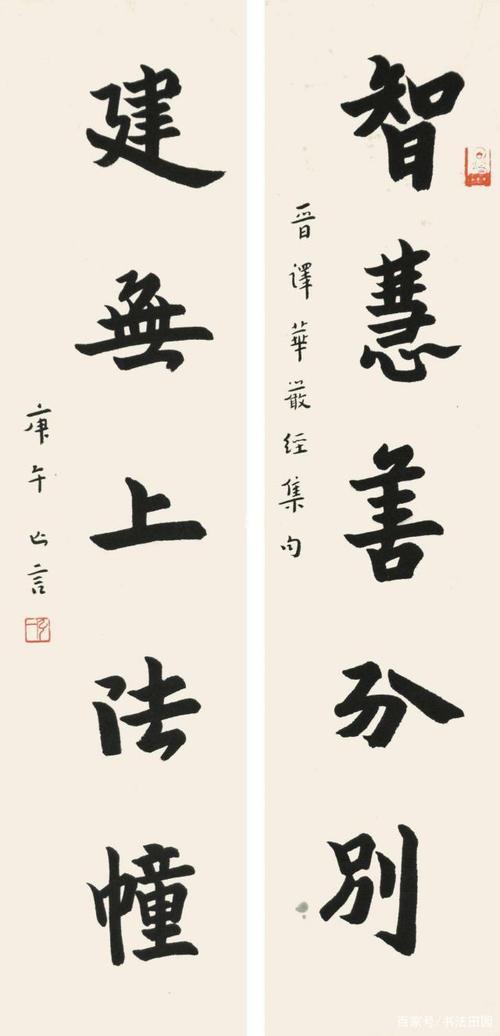 智慧善分別
晋譯華嚴經集句
建無上法幢
庚午亾言
百家号/书法田园